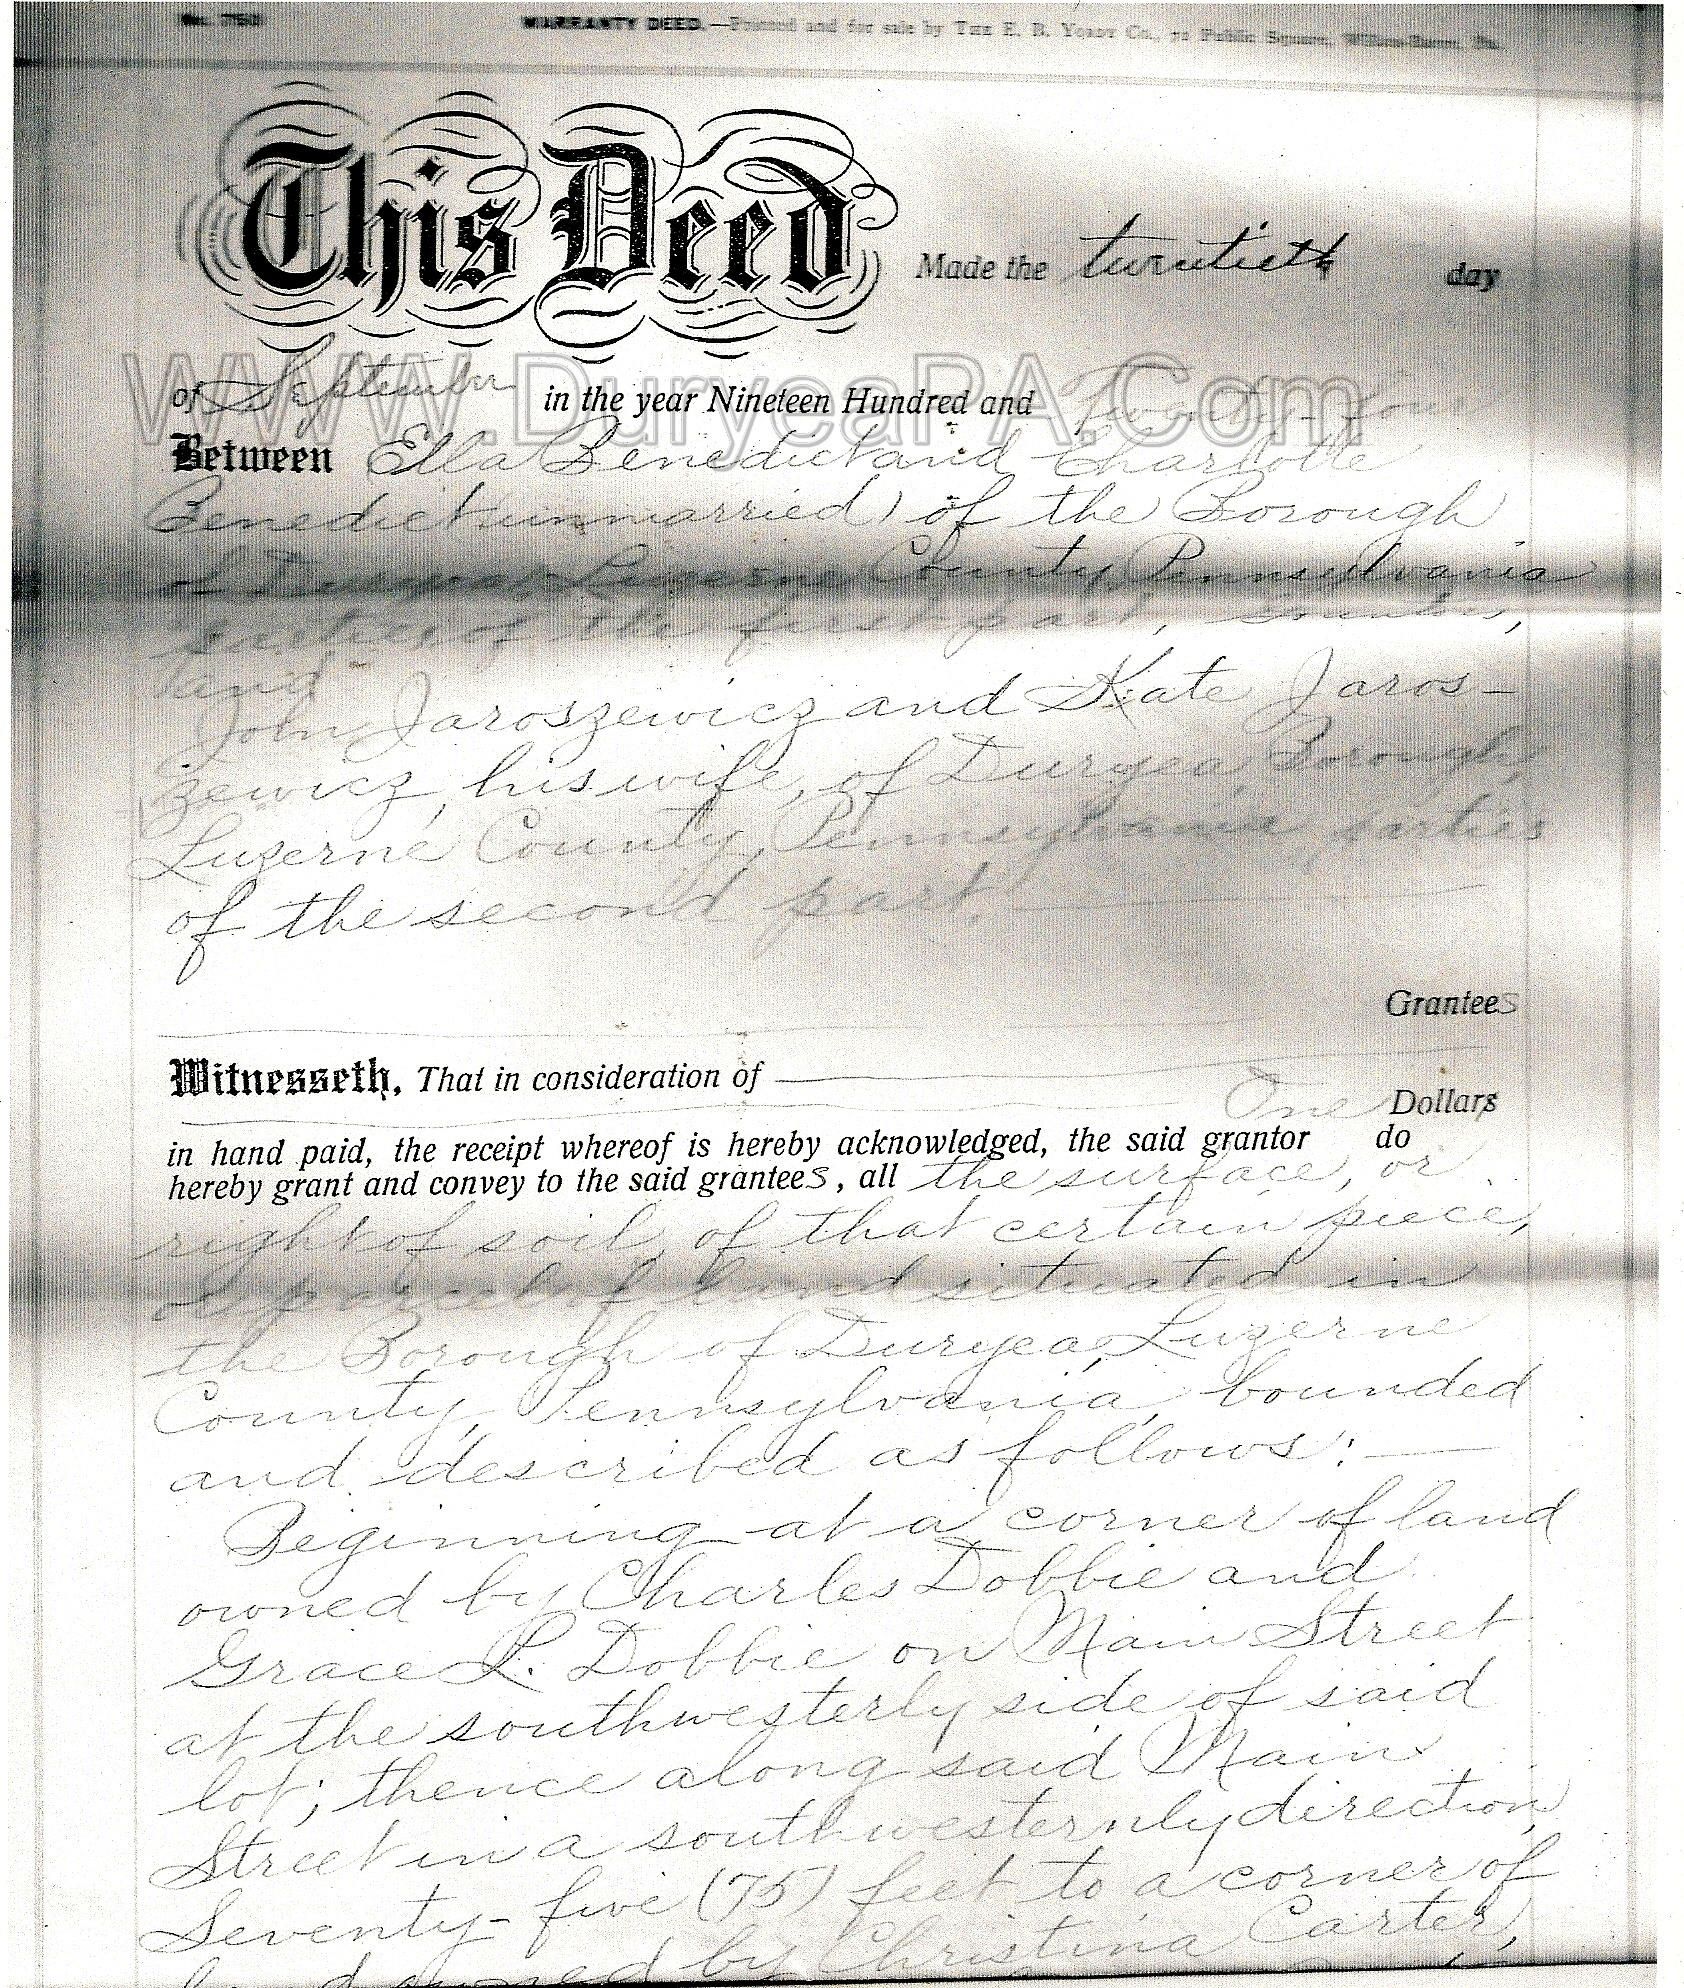 No. 750 WARRANTY DEED.—Printed and for sale by THE E. B. YORDY CO., Public Square, Wilkes-Barre, Pa.
This Deed Made the twentieth day
WWW.DuryeaPA.Com
of September in the year Nineteen Hundred and Twenty-four
Between Ella Benedict and Charlotte
Benedict (unmarried) of the Borough
of Duryea, Luzerne County, Pennsylvania
parties of the first part,
and
John Jaroszewicz and Kate Jaros-
zewicz, his wife, of Duryea Borough,
Luzerne County, Pennsylvania, parties
of the second part.
Grantees
Witnesseth, That in consideration of
One Dollars
in hand paid, the receipt whereof is hereby acknowledged, the said grantor do
hereby grant and convey to the said grantees, all the surface, or
right of soil, of that certain piece,
or parcel of land situated in
the Borough of Duryea, Luzerne
County, Pennsylvania, bounded
and described as follows:—
Beginning at a corner of land
owned by Charles Dobbie and
Grace L. Dobbie on Main Street
at the southwesterly side of said
lot; thence along said Main
Street in a southwesternly direction,
Seventy-five (75) feet to a corner of
land owned by Christina Carter,